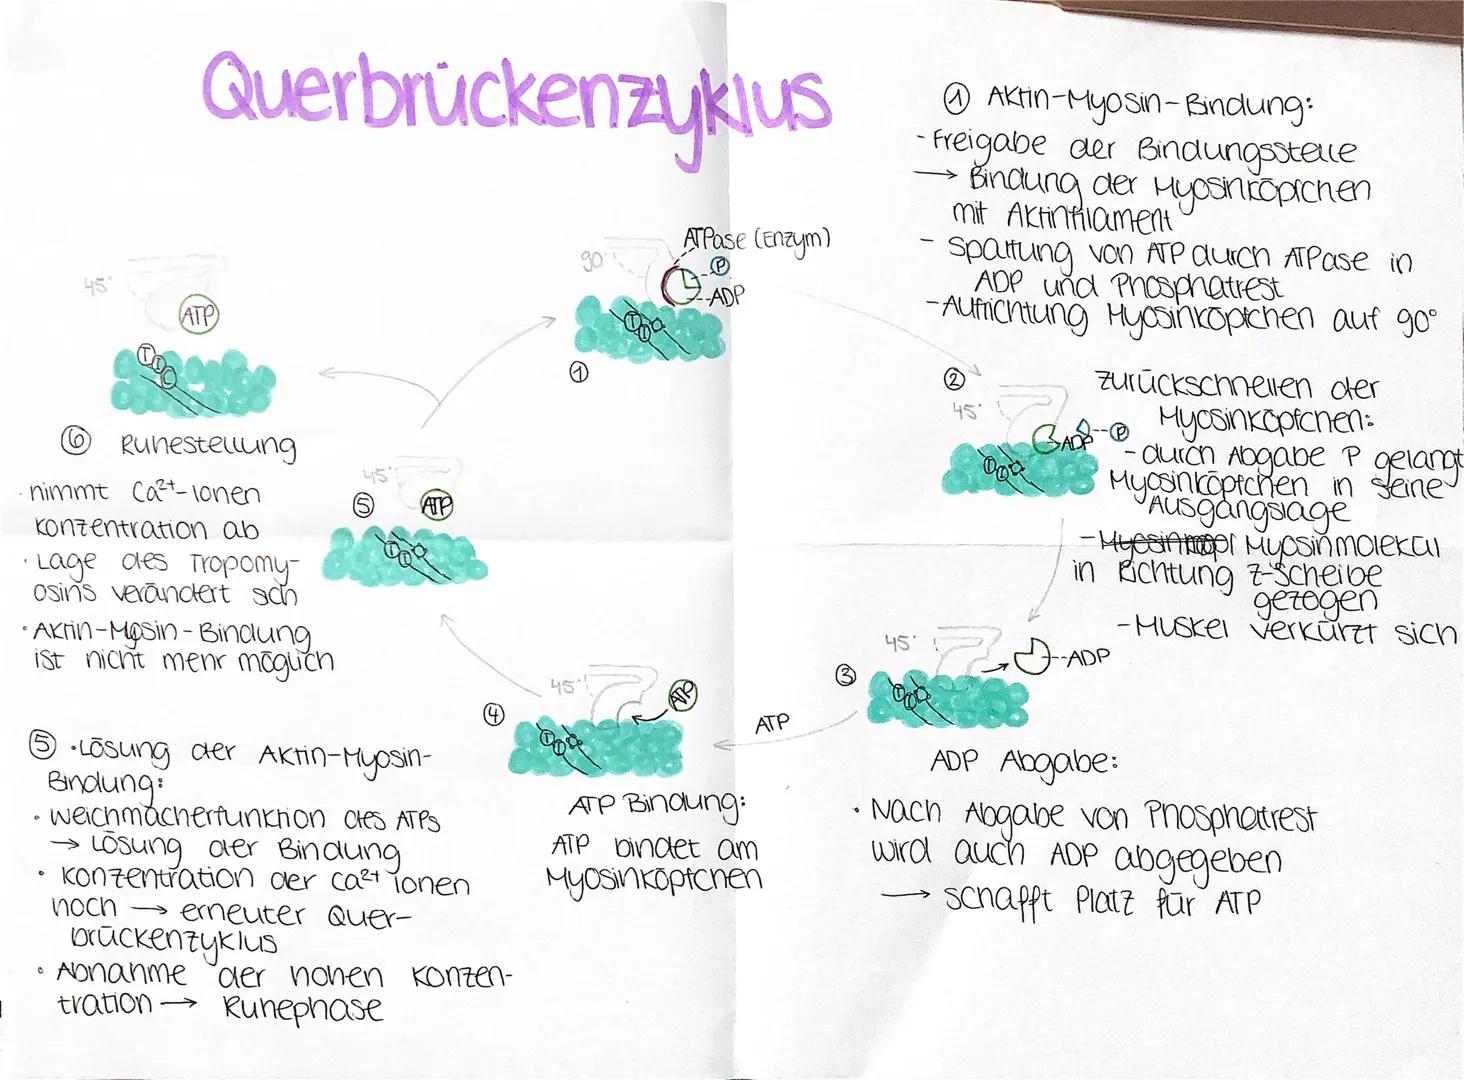 Querbrückenzyklus
① Aktin-Myosin-Bindung:
- Freigabe der Bindungsstelle
→ Bindung der Myosinköpfchen
mit Aktinfilament
- Spaltung von ATP durch ATPase in
ADP und Phosphatrest
- Aufrichtung Myosinköpfchen auf 90°
90°
ATPase (Enzym)
P
ADP
T
T
①
②
45°
ADP
P
Zurückschnellen der
Myosinköpfchen:
- durch Abgabe P gelangt
Myosinköpfchen in seine
Ausgangslage
- Myosinmolekül
in Richtung Z-Scheibe
gezogen
- Muskel verkürzt sich
③
45°
ADP
ADP Abgabe:
• Nach Abgabe von Phosphatrest
wird auch ADP abgegeben
→ schafft Platz für ATP
ATP
④
45°
ATP
ATP Bindung:
ATP bindet am
Myosinköpfchen
⑤
45°
ATP
⑤ • Lösung der Aktin-Myosin-
Bindung:
• Weichmacherfunktion des ATPs
→ Lösung der Bindung
• Konzentration der Ca²⁺ Ionen
hoch → erneuter Quer-
brückenzyklus
• Abnahme der hohen Konzen-
tration → Ruhephase
45°
ATP
T
I
C
⑥ Ruhestellung
• nimmt Ca²⁺-Ionen
Konzentration ab
• Lage des Tropomy-
osins verändert sich
• Aktin-Myosin-Bindung
ist nicht mehr möglich